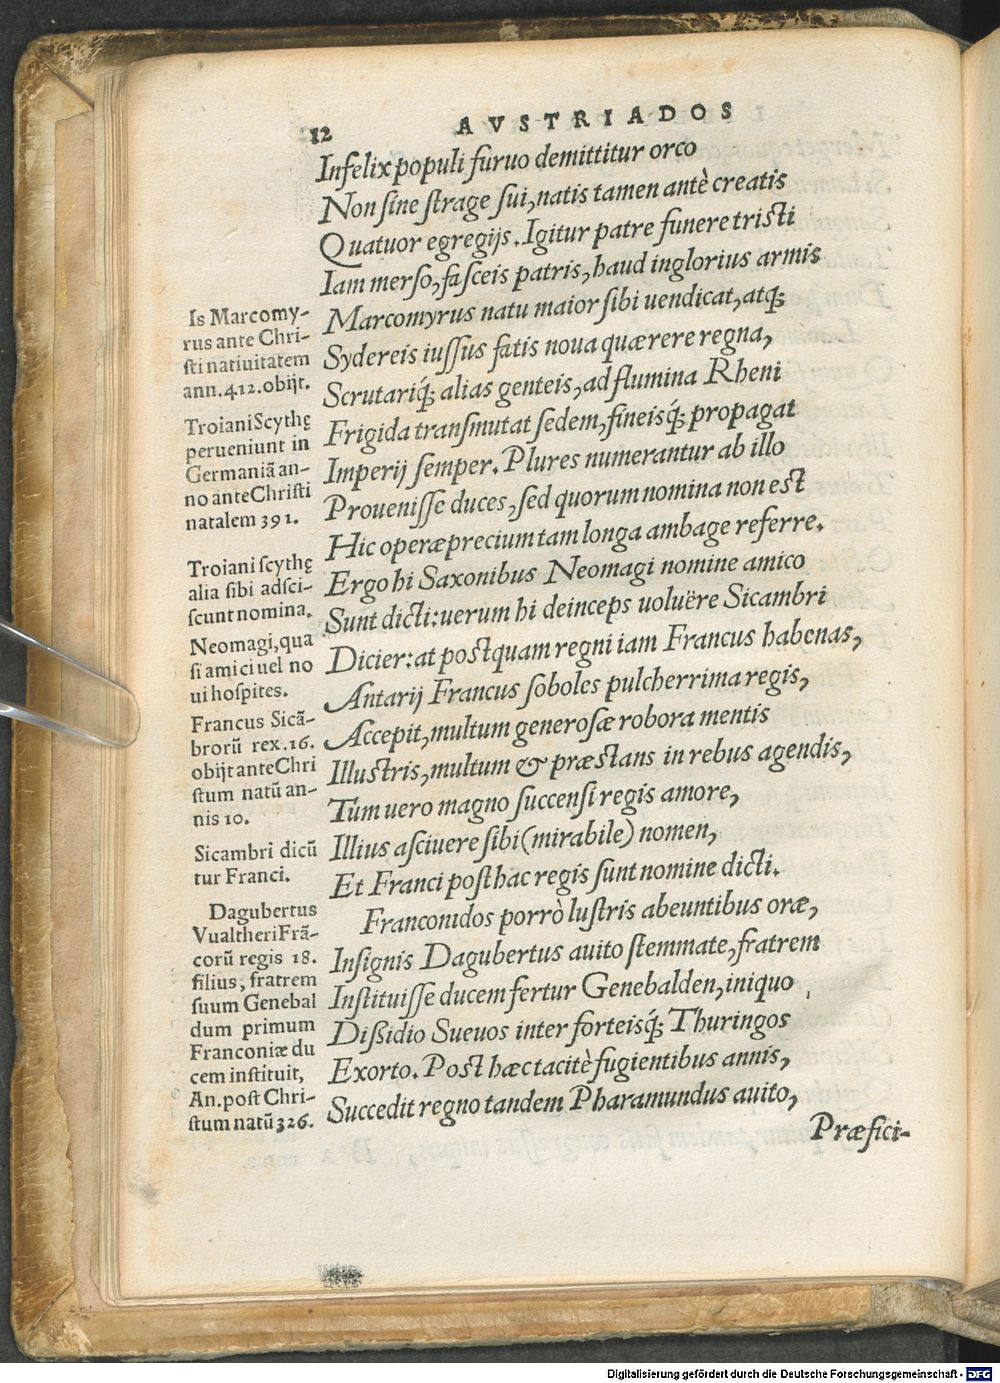 12 AVSTRIADOS
Infelix populi furuo demittitur orco
Non sine strage sui, natis tamen antè creatis
Quatuor egregijs. Igitur patre funere tristi
Iam merso, fasceis patris, haud inglorius armis
Marcomyrus natu maior sibi uendicat, atq;
Sydereis iussus fatis noua quærere regna,
Scrutariq́; alias genteis, ad flumina Rheni
Frigida transmutat sedem, fineisq́; propagat
Imperij semper. Plures numerantur ab illo
Prouenisse duces, sed quorum nomina non est
Hic operæprecium tam longa ambage referre.
Ergo hi Saxonibus Neomagi nomine amico
Sunt dicti: uerum hi deinceps uoluëre Sicambri
Dicier: at postquam regni iam Francus habenas,
Antarij Francus soboles pulcherrima regis,
Accepit, multum generosæ robora mentis
Illustris, multum & præstans in rebus agendis,
Tùm uero magno succensi regis amore,
Illius asciuere sibi (mirabile) nomen,
Et Franci posthac regis sunt nomine dicti.
Franconidos porrò lustris abeuntibus oræ,
Insignis Dagubertus auito stemmate, fratrem
Instituisse ducem fertur Genebalden, iniquo
Dißidio Sueuos inter forteisq́; Thuringos
Exorto. Post hæc tacitè fugientibus annis,
Succedit regno tandem Pharamundus auito,
Præfici-
Is Marcomy-
rus ante Chri-
sti natiuitatem
ann. 412. obijt.
Troiani Scythę
perueniunt in
Germaniã an-
no ante Christi
natalem 391.
Troiani scythę
alia sibi adsci-
scunt nomina.
Neomagi, qua
si amici uel no
ui hospites.
Francus Sicã-
brorũ rex. 16.
obijt ante Chri
stum natũ an-
nis 10.
Sicambri dicũ
tur Franci.
Dagubertus
Vualtheri Frã-
corũ regis 18.
filius, fratrem
suum Genebal
dum primum
Franconiæ du
cem instituit,
An. post Chri-
stum natũ 326.
Digitalisierung gefördert durch die Deutsche Forschungsgemeinschaft - DFG